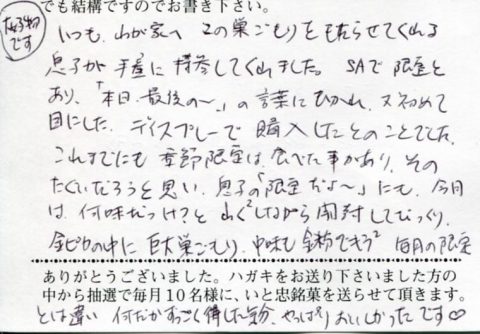 でも結構ですのでお書き下さい。
大好物です
いつも、わが家へ この巣ごもりをもらせてくれる
息子が 手産に 持参してくれました。 SAで 限定と
あり、「本日、最後の〜」の言葉にひかれ、又初めて
目にした、ディスプレーで 購入したとのことでした。
これまでにも 季節限定は、食べた事があり、その
たぐいだろうと思い、息子の「限定だよ〜」にも、今月
は、何味だっけ?と わくわくしながら開封してびっくり。
金ピカの中に 巨大巣ごもり、中味も 金粉でキラキラ 毎月の限定
ありがとうございました。ハガキをお送り下さいました方の
中から抽選で毎月10名様に、いと忠銘菓を送らせて頂きます。
とは違い 何だかすっごく得した気分、やっぱり おいしかったです♡